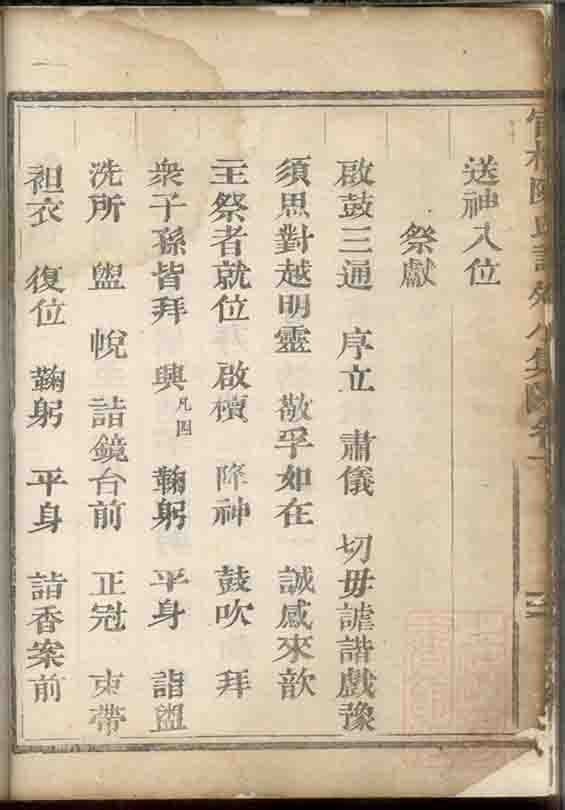 送神入位
祭獻
啟鼓三通 序立 肅儀 切毋謔諧戲豫
須思對越明靈 敬孚如在 誠感來歆
主祭者就位 啟櫝 降神 鼓吹 拜
衆子孫皆拜 興凡四 鞠躬 平身 詣盥
洗所 盥 帨 詣鏡台前 正冠 束帶
袒衣 復位 鞠躬 平身 詣香案前